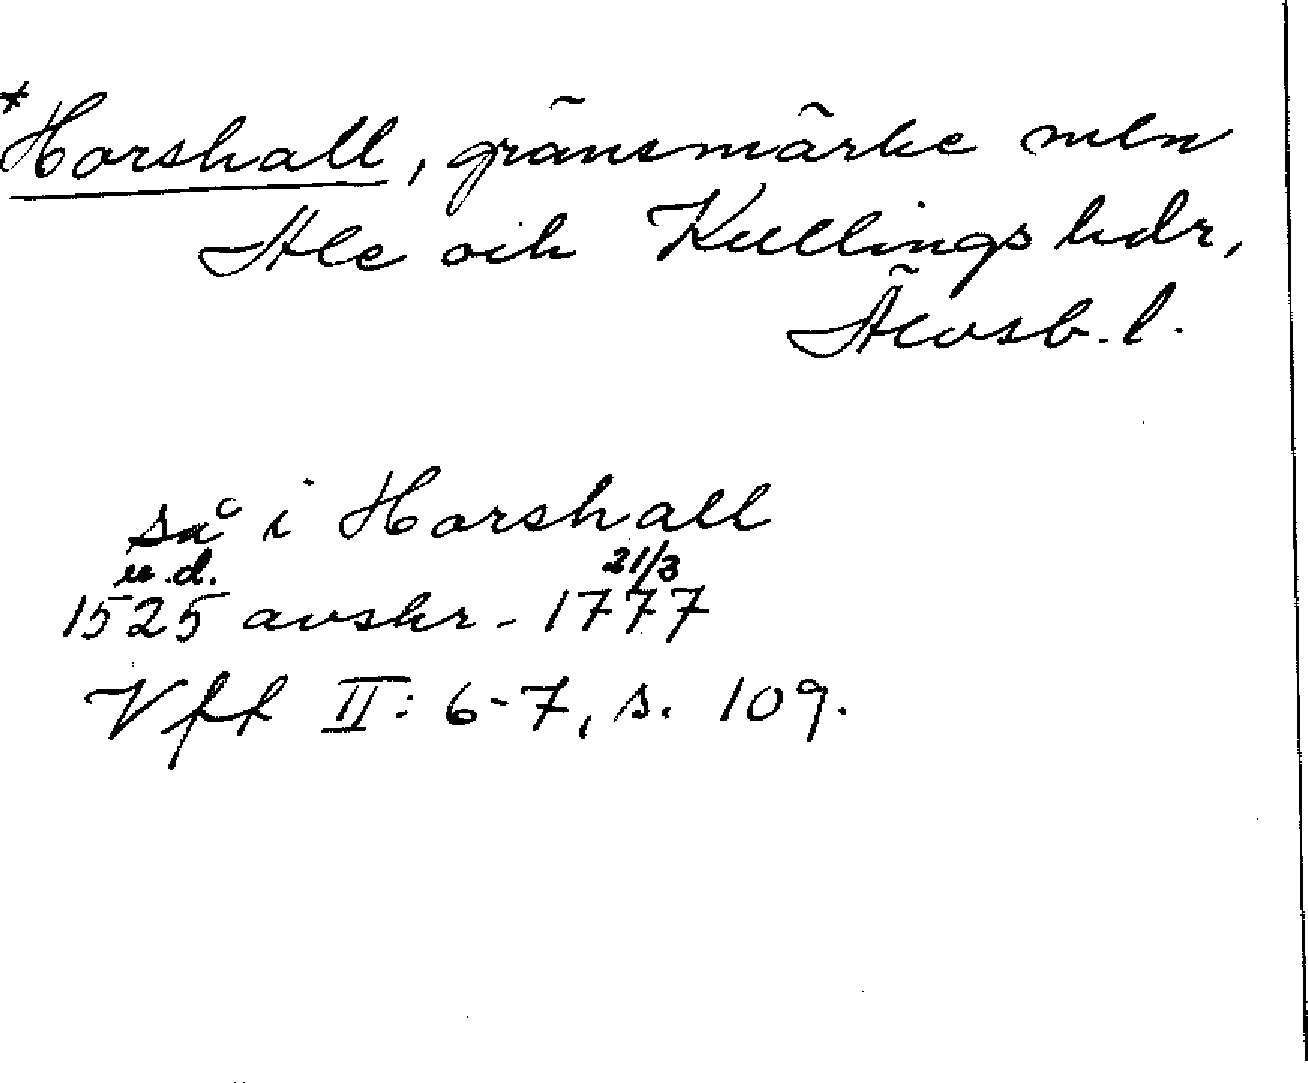 *Horshall, gränsmärke mln
Ale och Kullings hdr,
Älvsb. l.
så i Horshall
u.d. 21/3
1525 avskr. 1777
Vff II: 6-7, s. 109.